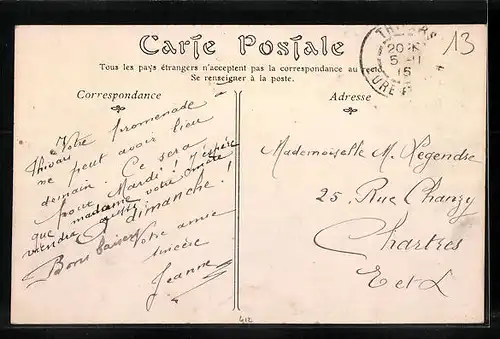 Carte Postale
Tous les pays étrangers n'acceptent pas la correspondance au recto
Se renseigner à la poste.
Correspondance
Adresse
13
20
5 - 11
15
Votre promenade à
Thivars
ne peut avoir lieu
demain. Ce sera
pour Mardi! J'espère
que madame votre
viendra aussi
à dimanche!
Bons baisers
Votre amie
sincère
Jeanne
Mademoiselle M. Legendre
25, Rue Chanzy
Chartres
E et L
412